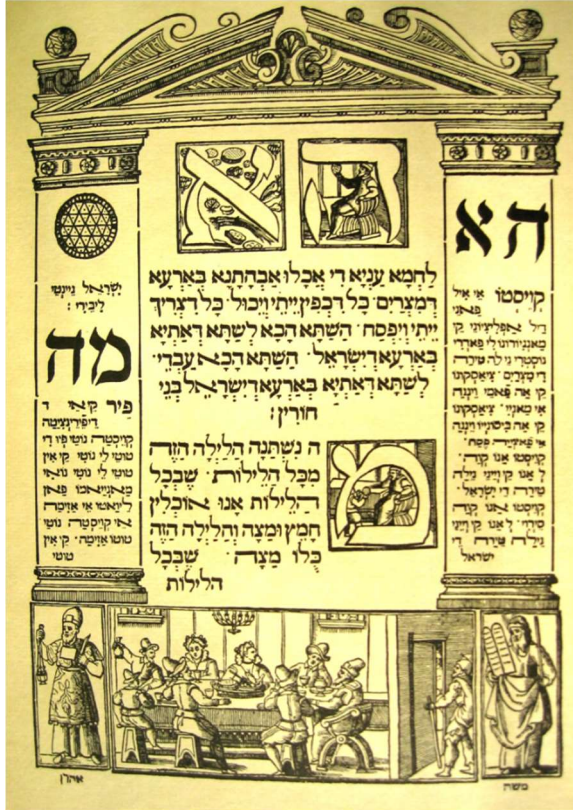 הא
לַחְמָא עַנְיָא דִי אֲכָלוּ אַבְהָתָנָא בְּאַרְעָא
דְמִצְרָיִם · כָּל דִכְפִין יֵיתֵי וְיֵכוֹל · כָּל דִצְרִיךְ
יֵיתֵי וְיִפְסַח · הָשַׁתָּא הָכָא לְשַׁתָּא דְאָתְיָא
בְּאַרְעָא דְיִשְׂרָאֵל · הָשַׁתָּא הָכָא עַבְדֵי ·
לְשַׁתָּא דְאָתְיָא בְּאַרְעָא דְיִשְׂרָאֵל בְּנֵי
חוֹרִין :
מ
ה נִשְׁתַּנָה הַלַיְלָה הַזֶה
מִכָּל הַלֵילוֹת · שֶׁבְּכָל
הַלֵילוֹת אָנוּ אוֹכְלִין
חָמֵץ וּמַצָה וְהַלַיְלָה הַזֶה
כֻּלוֹ מַצָה · שֶׁבְּכָל
הלילות
הא
קויסטו אי איל
פאני
דיל אפליציוני קי
מאנגיורונו לי פאדרי
נוסטרי ני לה טירה
די מצרים · ציאסקונו
קי אה פאמי וינגה
אי מאניי · ציאסקונו
קי אה ביסונייו וינגה
אי פאצייה פסח ·
קויסטו אנו קוה ·
ל אנו קי וייני נילה
טירה די ישראל ·
קויסטו אנו קוה
סירוי · ל אנו קי וייני
נילה טירה די
ישראל
ישראל גיינטי
ליבירי :
מה
פיר קיאי ד
דיפירינציטה
קויסטה נוטי פיו די
טוטי לי נוטי קי אין
טוטי לי נוטי נואי
מאנייאמו פאן
ליואטו אי אזימה
אי קויסטה נוטי
טוטו אזימה · קי אין
טוטי
אהרן
משה